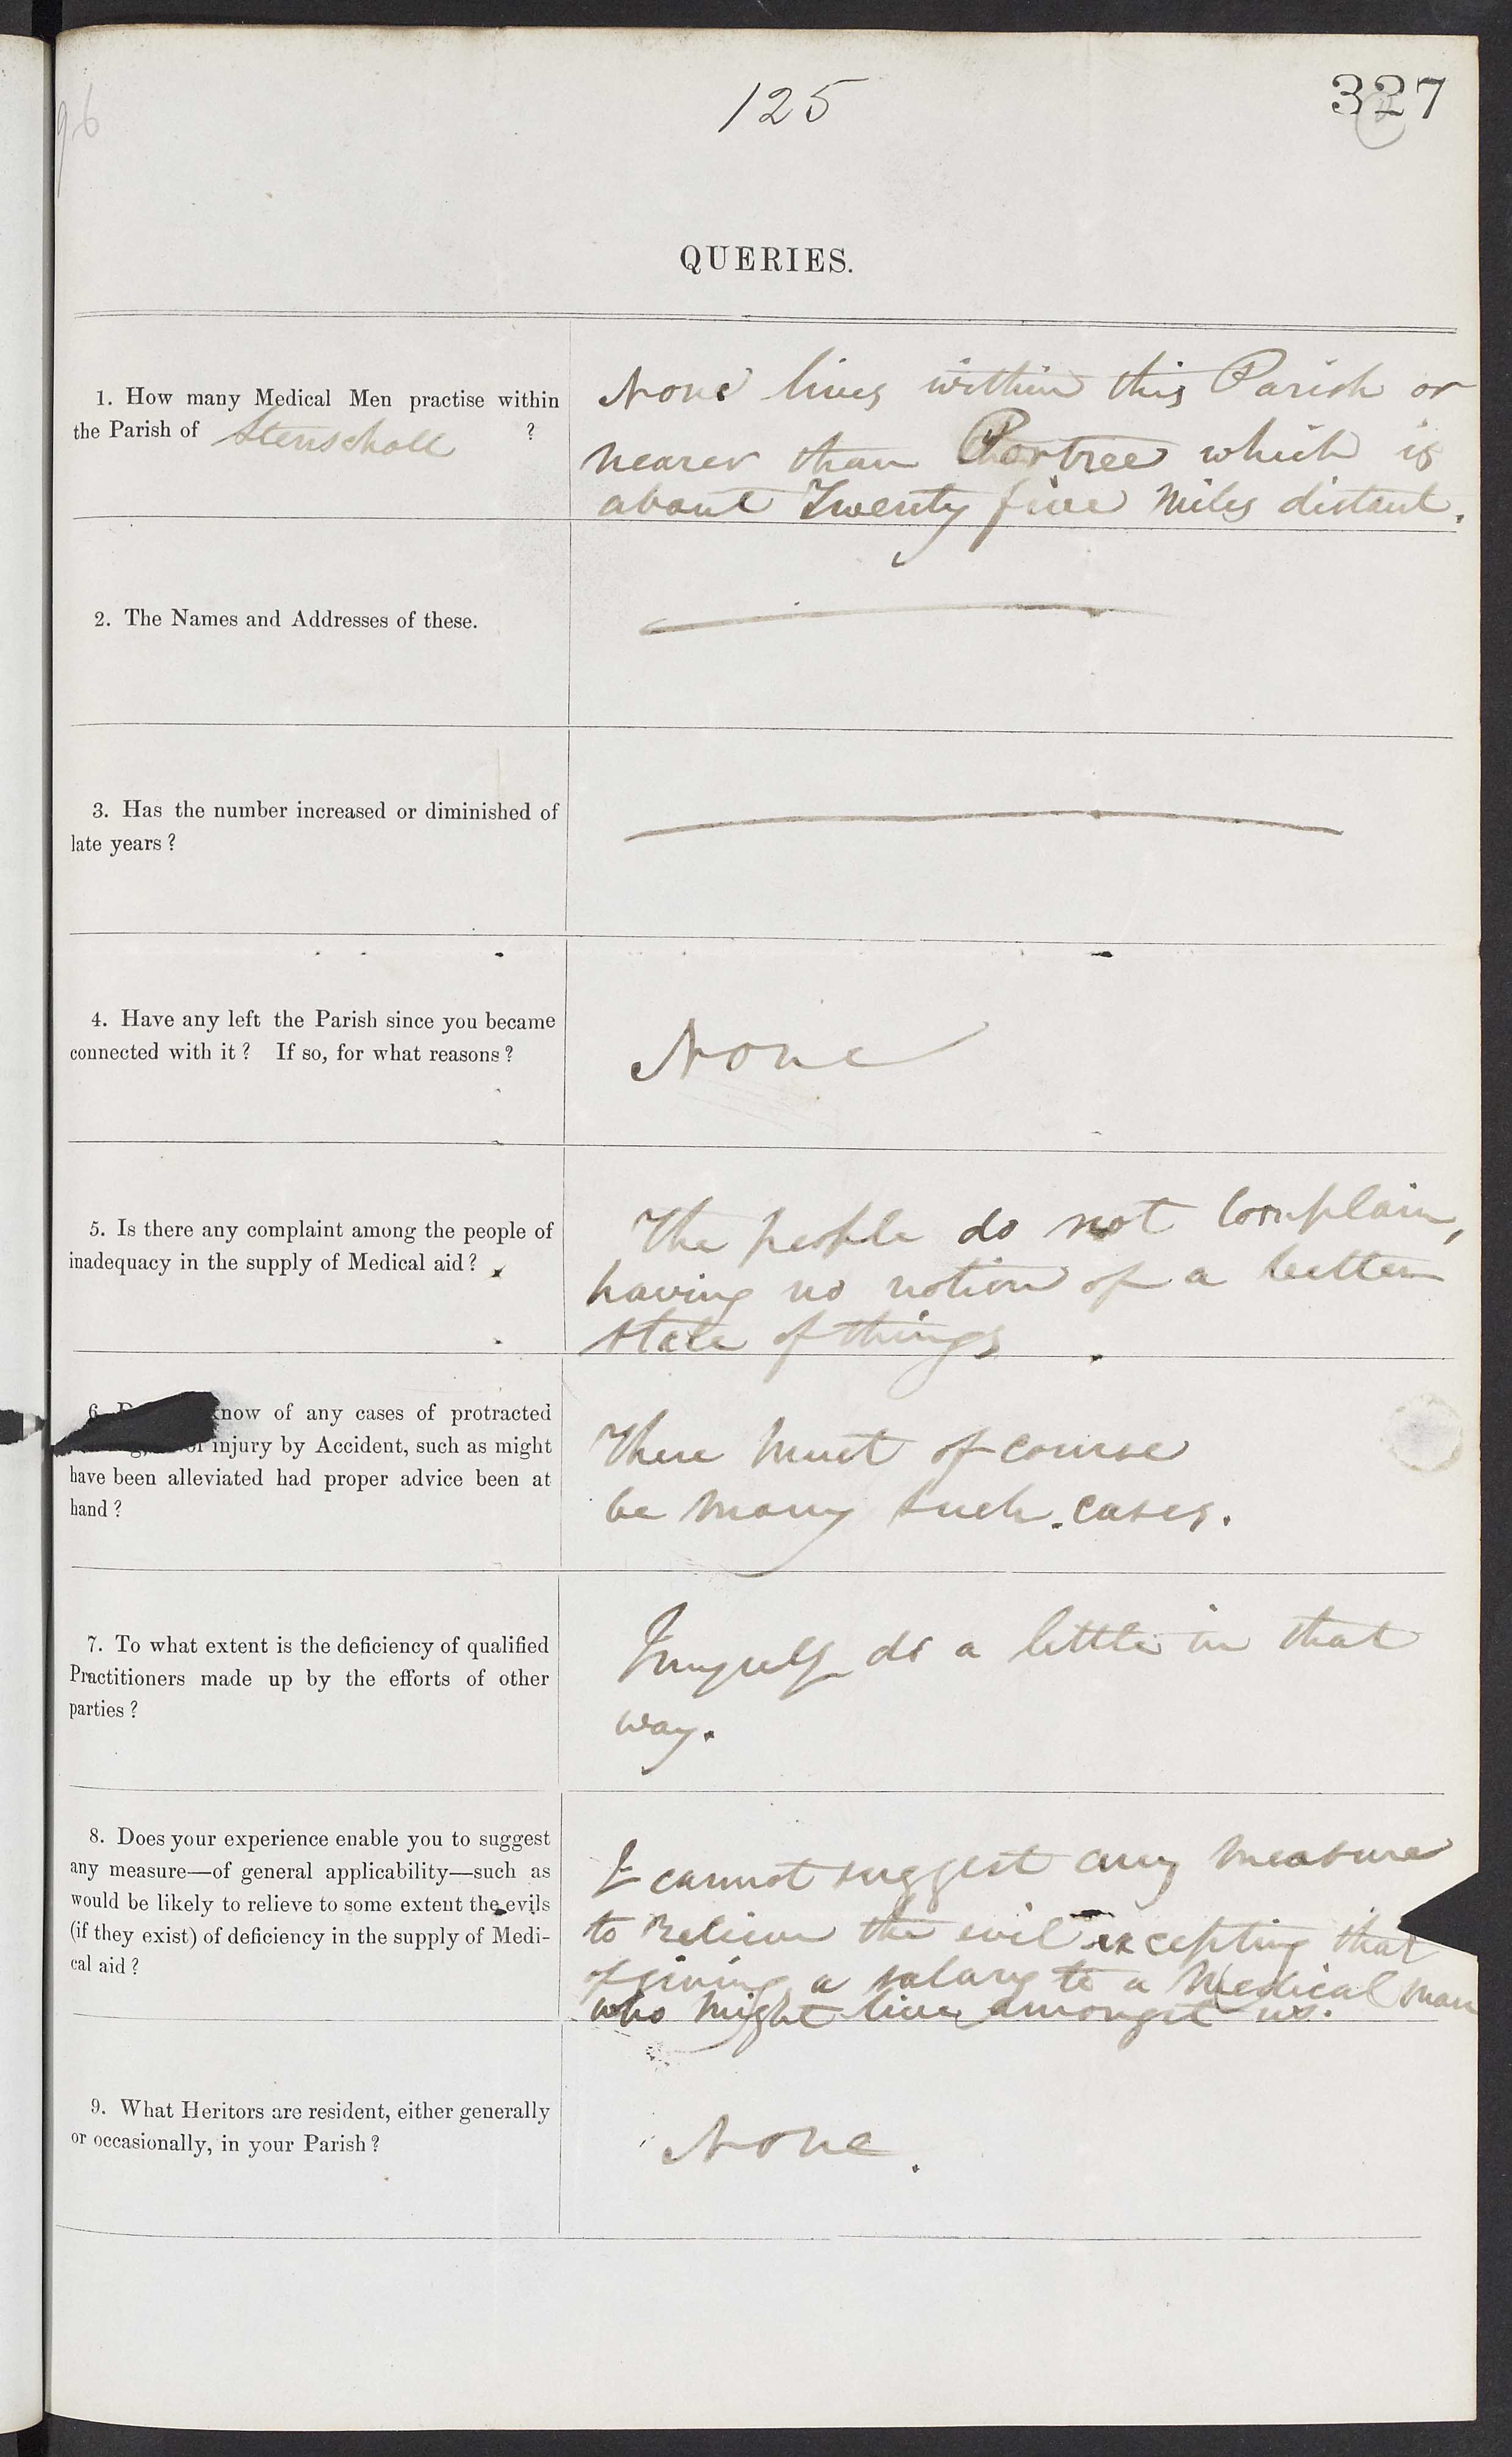 96
125
327
QUERIES.
1. How many Medical Men practise within
the Parish of Stenscholl ?
None lives within this Parish or
nearer than Portree which is
about Twenty five Miles distant.
2. The Names and Addresses of these.
3. Has the number increased or diminished of
late years ?
4. Have any left the Parish since you became
connected with it ? If so, for what reasons ?
None
5. Is there any complaint among the people of
inadequacy in the supply of Medical aid ?
The people do not Complain,
having no notion of a better
state of things
6. know of any cases of protracted
injury by Accident, such as might
have been alleviated had proper advice been at
hand ?
There must of course
be many such cases.
7. To what extent is the deficiency of qualified
Practitioners made up by the efforts of other
parties ?
I myself do a little in that
way.
8. Does your experience enable you to suggest
any measure—of general applicability—such as
would be likely to relieve to some extent the evils
(if they exist) of deficiency in the supply of Medi-
cal aid ?
I cannot suggest any measure
to relieve the evil excepting that
of giving a salary to a Medical man
who might live amongst us.
9. What Heritors are resident, either generally
or occasionally, in your Parish ?
None.